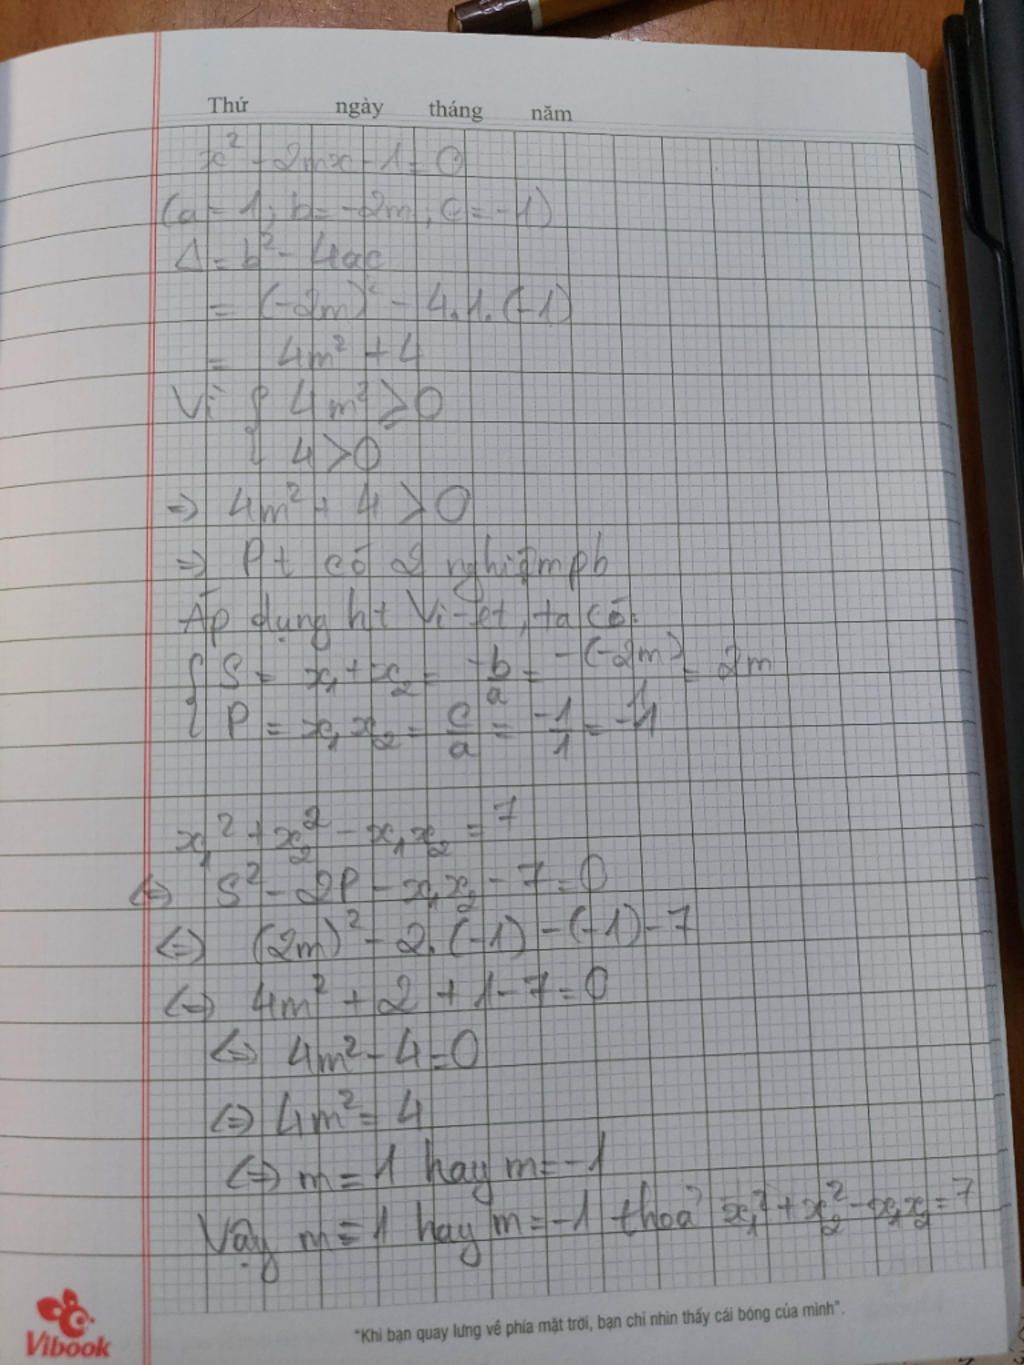 Thứ ngày tháng năm
x² - 2mx - 1 = 0
(a = 1; b = -2m; c = -1)
Δ = b² - 4ac
= (-2m)² - 4.1.(-1)
= 4m² + 4
Vì { 4m² ≥ 0
{ 4 > 0
=> 4m² + 4 > 0
=> Pt có 2 nghiệm pb
Áp dụng ht Vi-ét, ta có:
{ S = x₁ + x₂ = -b/a = -(-2m)/1 = 2m
{ P = x₁x₂ = c/a = -1/1 = -1
x₁² + x₂² - x₁x₂ = 7
<=> S² - 2P - x₁x₂ - 7 = 0
<=> (2m)² - 2.(-1) - (-1) - 7
<=> 4m² + 2 + 1 - 7 = 0
<=> 4m² - 4 = 0
<=> 4m² = 4
<=> m = 1 hay m = -1
Vậy m = 1 hay m = -1 thoả x₁² + x₂² - x₁x₂ = 7
"Khi bạn quay lưng về phía mặt trời, bạn chỉ nhìn thấy cái bóng của mình".
Vibook